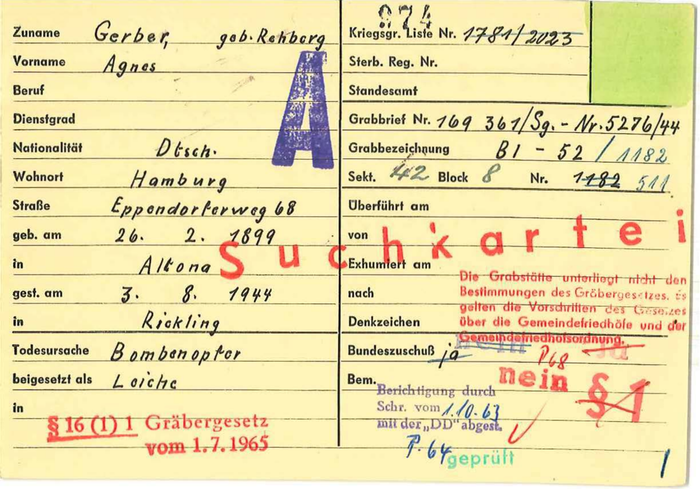 874
Zuname Gerber, geb. Rehberg
Vorname Agnes
Beruf
Dienstgrad
Nationalität Dtsch.
Wohnort Hamburg
Straße Eppendorferweg 68
geb. am 26. 2. 1899
in Altona
gest. am 3. 8. 1944
in Rickling
Todesursache Bombenopfer
beigesetzt als Leiche
in
§ 16 (1) 1 Gräbergesetz
vom 1.7.1965
A
Suchkartei
Kriegsgr. Liste Nr. 1781/2023
Sterb. Reg. Nr.
Standesamt
Grabbrief Nr. 169 361/Sg. - Nr. 5276/44
Grabbezeichnung BI - 52 / 1182
Sekt. 42 Block 8 Nr. 1182 511
Überführt am
von
Exhumiert am
nach
Denkzeichen
Die Grabstätte unterliegt nicht den
Bestimmungen des Gräbergesetzes. Es
gelten die Vorschriften des Gesetzes
über die Gemeindefriedhöfe und der
Gemeindefriedhofsordnung.
Bundeszuschuß ja nein ja
P68
nein § 1
Bem.
Berichtigung durch
Schr. vom 1.10.63
mit der „DD" abgest.
P. 64 geprüft
1